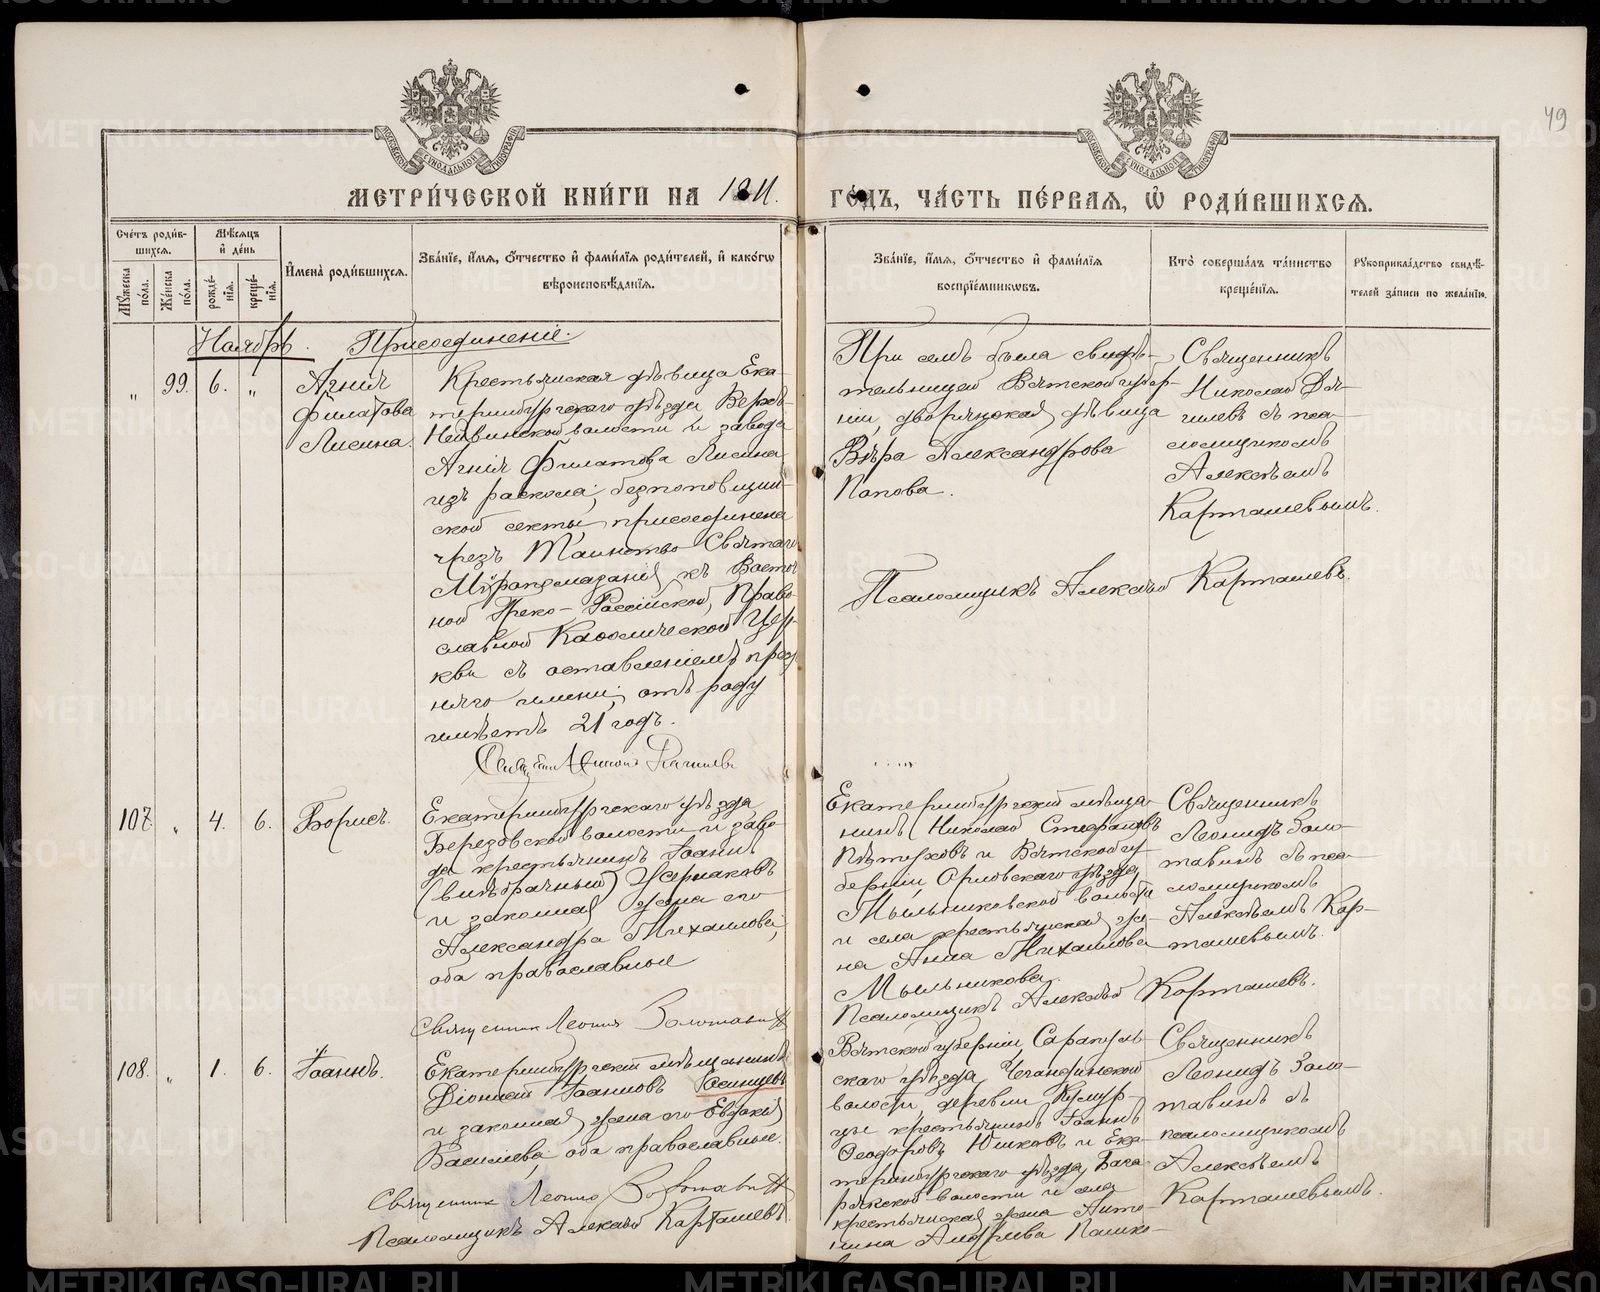 49
МЕТРИ́ЧЕСКОЙ КНИ́ГИ НА 1911. ГО́ДЪ, ЧА́СТЬ ПЕ́РВАЯ, Ѡ҆ РОДИ́ВШИХСЯ.
Сче́тъ роди́в-
шихся.
Мѣ́сяцъ
и҆ де́нь
Мꙋ́жеска
по́ла.
Же́нска
по́ла.
рожде́-
нїя.
креще́-
нїя.
И҆мена̀ роди́вшихся.
Зва́нїе, и҆́мя, ѻ҆́тчество и҆ фами́лїя роди́телей, и҆ како́гѡ
вѣроисповѣ́данїя.
Зва́нїе, и҆́мя, ѻ҆́тчество и҆ фами́лїя
воспрїе́мникѡвъ.
Кто̀ соверша́лъ та́инство
креще́нїя.
Рꙋкоприкла́дство свидѣ́-
телей за́писи по жела́нїю.
Ноябрь. Присоединенiе.
„ 99. 6. „
Агнiя
Филатова
Лисина.
Крестьянская дѣвица Ека-
теринбургскаго уѣзда Верхъ-
Нейвинской волости и завода
Агнiя Филатова Лисина
изъ раскола, безпоповщин-
ской секты присоединена
чрезъ Таинство Святаго
Мѵропомазанiя къ Восточ-
ной Греко-Россiйской, Право-
славной Каѳолической Цер-
кви съ оставленiемъ преж-
няго имени; отъ роду
имѣетъ 21 годъ.
При семъ была свидѣ-
тельницей Вятской губер-
нiи, дворянская дѣвица
Вѣра Александрова
Попова.
Священникъ
Николай Дяг-
илевъ съ пса-
ломщикомъ
Алексѣемъ
Карташевымъ.
Псаломщикъ Алексѣй Карташевъ.
107. „ 4. 6. Борисъ.
Екатеринбургскаго уѣзда
Березовской волости и заво-
да крестьянинъ Iоаннъ
(внѣбрачный) Усольаковъ
и законная жена его
Александра Михаилова,
оба православные
Священник Леонид Золотавин
Екатеринбургскiй мѣща-
нинъ Николай Стефановъ
Пѣтуховъ и Вятской гу-
бернiи Орловскаго уѣзда,
Мыльниковской волости
и села крестьянская же-
на Анна Михаилова
Мыльникова.
Псаломщикъ Алексѣй Карташевъ.
Священникъ
Леонидъ Золо-
тавинъ съ пса-
ломщикомъ
Алексѣемъ Кар-
ташевымъ.
108. „ 1. 6. Iоаннъ.
Екатеринбургскiй мѣщанинъ
Дiонисiй Iоанновъ Казанцевъ
и законная жена его Евдокiя
Васильева оба православные.
Священник Леонид Золотавин
Псаломщикъ Алексѣй Карташевъ
Вятской губернiи, Сарапуль-
скаго уѣзда, Чегандинской
волости, деревни
крестьянинъ Iоаннъ
Ѳеодоровъ Юшковъ и Ека-
теринбургскаго уѣзда, Бага-
рякской волости и села
крестьянская жена Анто-
нина Андреева Пашко-
Священникъ
Леонидъ Золо-
тавинъ съ
псаломщикомъ
Алексѣемъ
Карташевымъ.